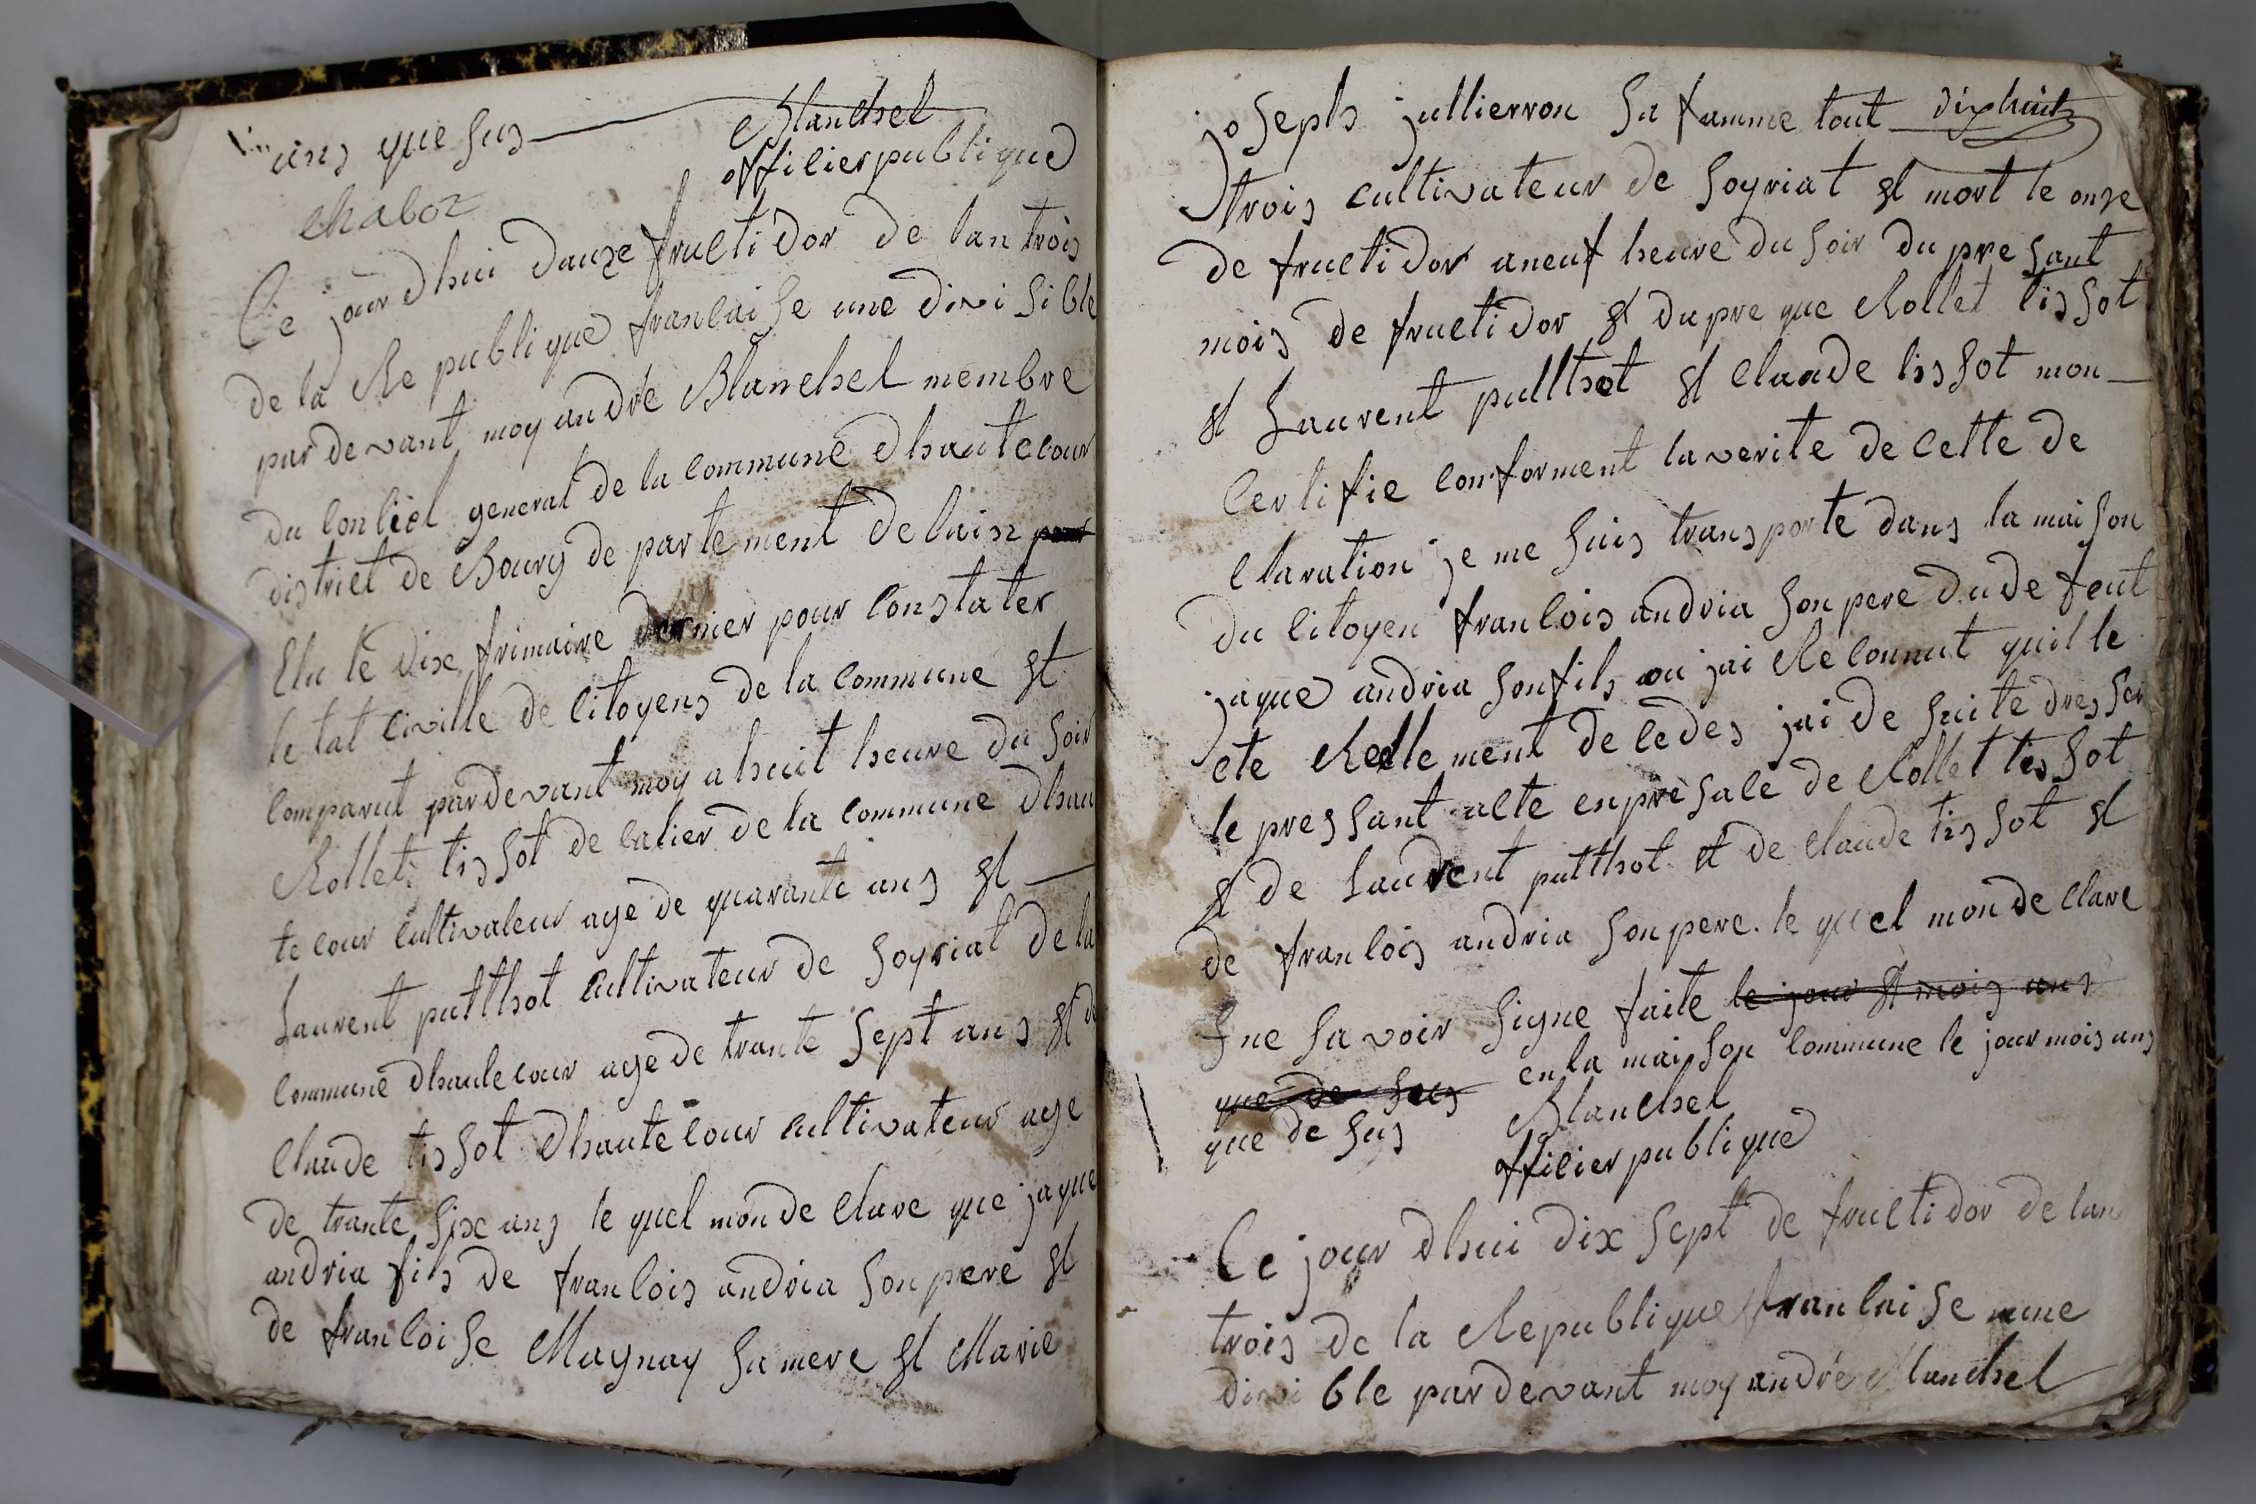 ans que sus
Blanchet
offilier publique
Chaboz
Ce jour dhui dauze fructidor de lan trois
de la Re publique franlaise une divi sible
par devant moy andré Blanchet membre
du conliel general de la commune dhautecour
district de Bourg de parte ment de lain
Elu le dixe frimaire dernier pour constater
le tat civille de citoyens de la commune et
comparut pardevant moy a huit heure du soir
Rollet tissot de calier de la commune dhau
te cour cultivateur age de quarante ans et
Laurent putthot cultivateur de soyriat de la
commune dhautecour age de trante sept ans et de
Claude tissot dhautecour cultivateur age
de trante sixe ans le quel mon de clare que jaque
andria fils de franlois andria son pere et
de franloise Magnay sa mere et Marie
joseph jullierron sa famme tout dixhuit
trois cultivateur de soyriat et mort le onze
de fructidor aneuf heure du soir du pre sant
mois de fructidor et dapre que Rollet tissot
et Laurent putthot et Claude tissot mon
certifie conforment la verite de cette de
claration je me suis transporte dans la maison
du citoyen franlois andria son pere du de feut
jaque andria son fils ou jai Reconnut quil le
ete Reelle ment de cedes jai de suite dresser
le pressant alte enpresale de Rollet tissot
et de Laudrent putthot et de Claude tissot et
de franlois andria son pere. le quel mon de clare
ne savoir signe faite le jour et mois ans
que de sus en la maison commune le jour mois ans
que de sus Blanchet
offilier publique
Ce jour dhui dix sept de fructidor de lan
trois de la Republique franlaise une
divi ble par devant moy andré Blanchet